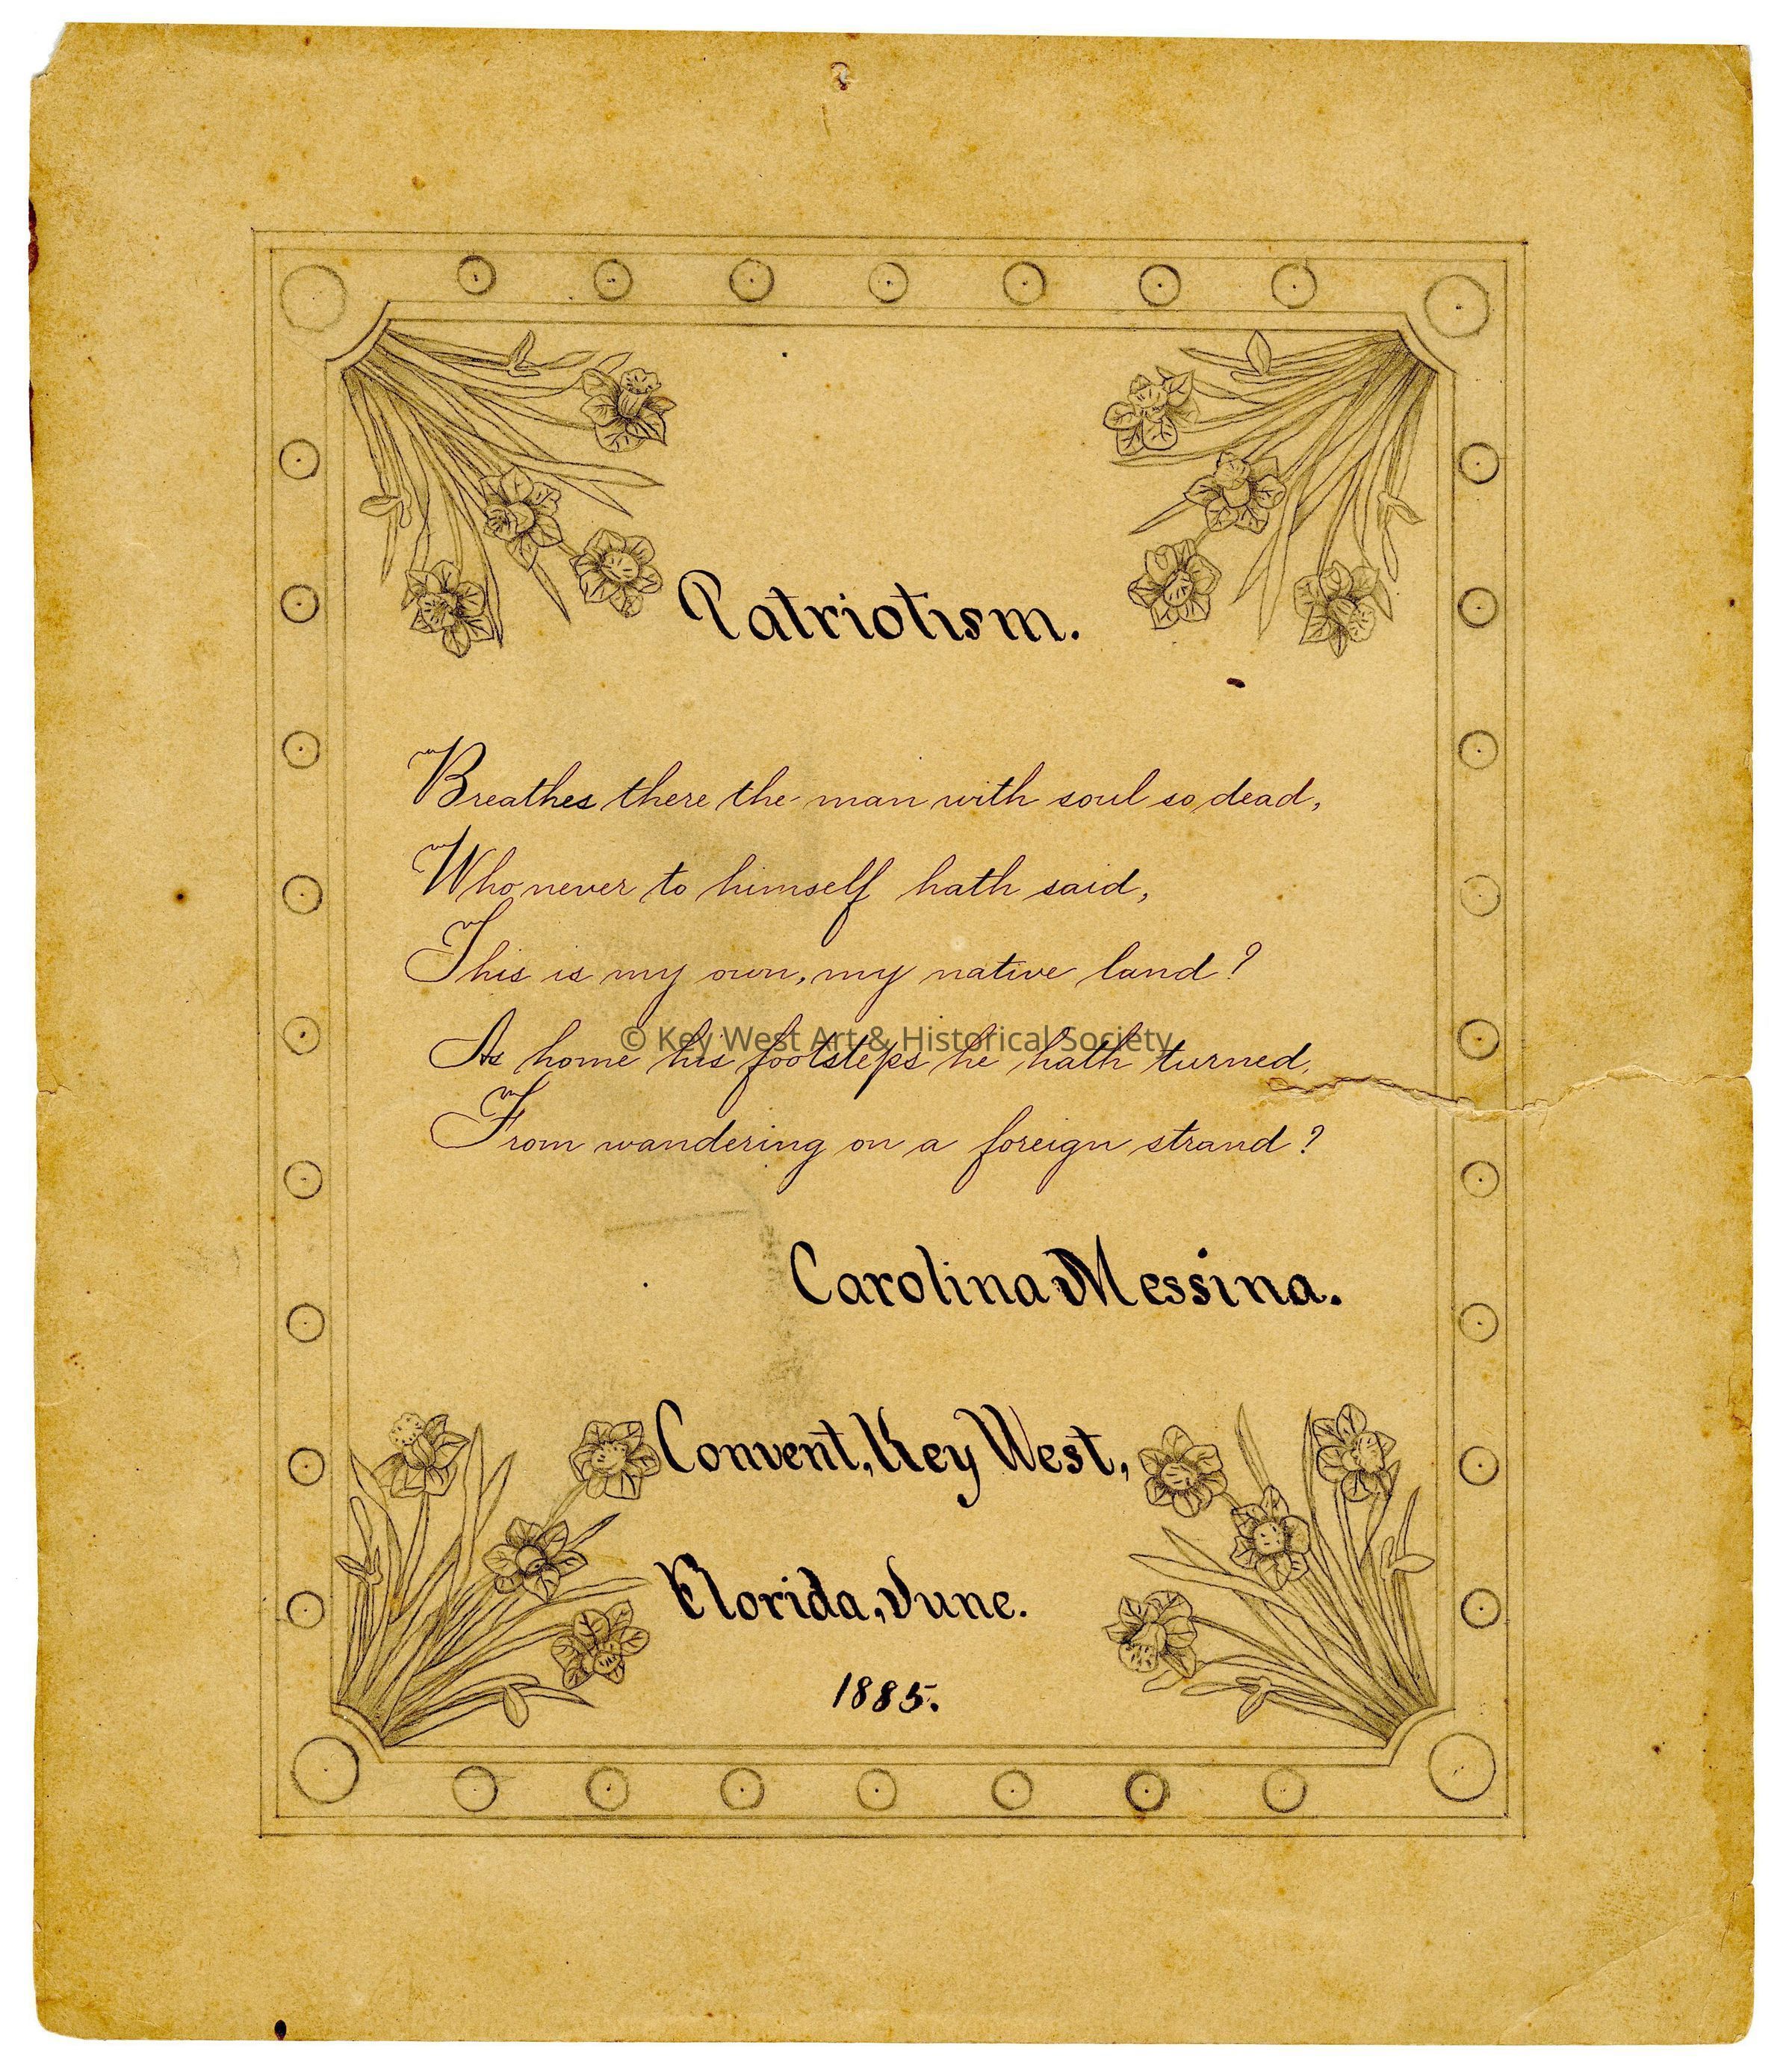 Patriotism.
Breathes there the man with soul so dead,
Who never to himself hath said,
This is my own, my native land?
As home his footsteps he hath turned,
From wandering on a foreign strand?
Carolina Messina.
Convent, Key West,
Florida, June.
1885.
© Key West Art & Historical Society